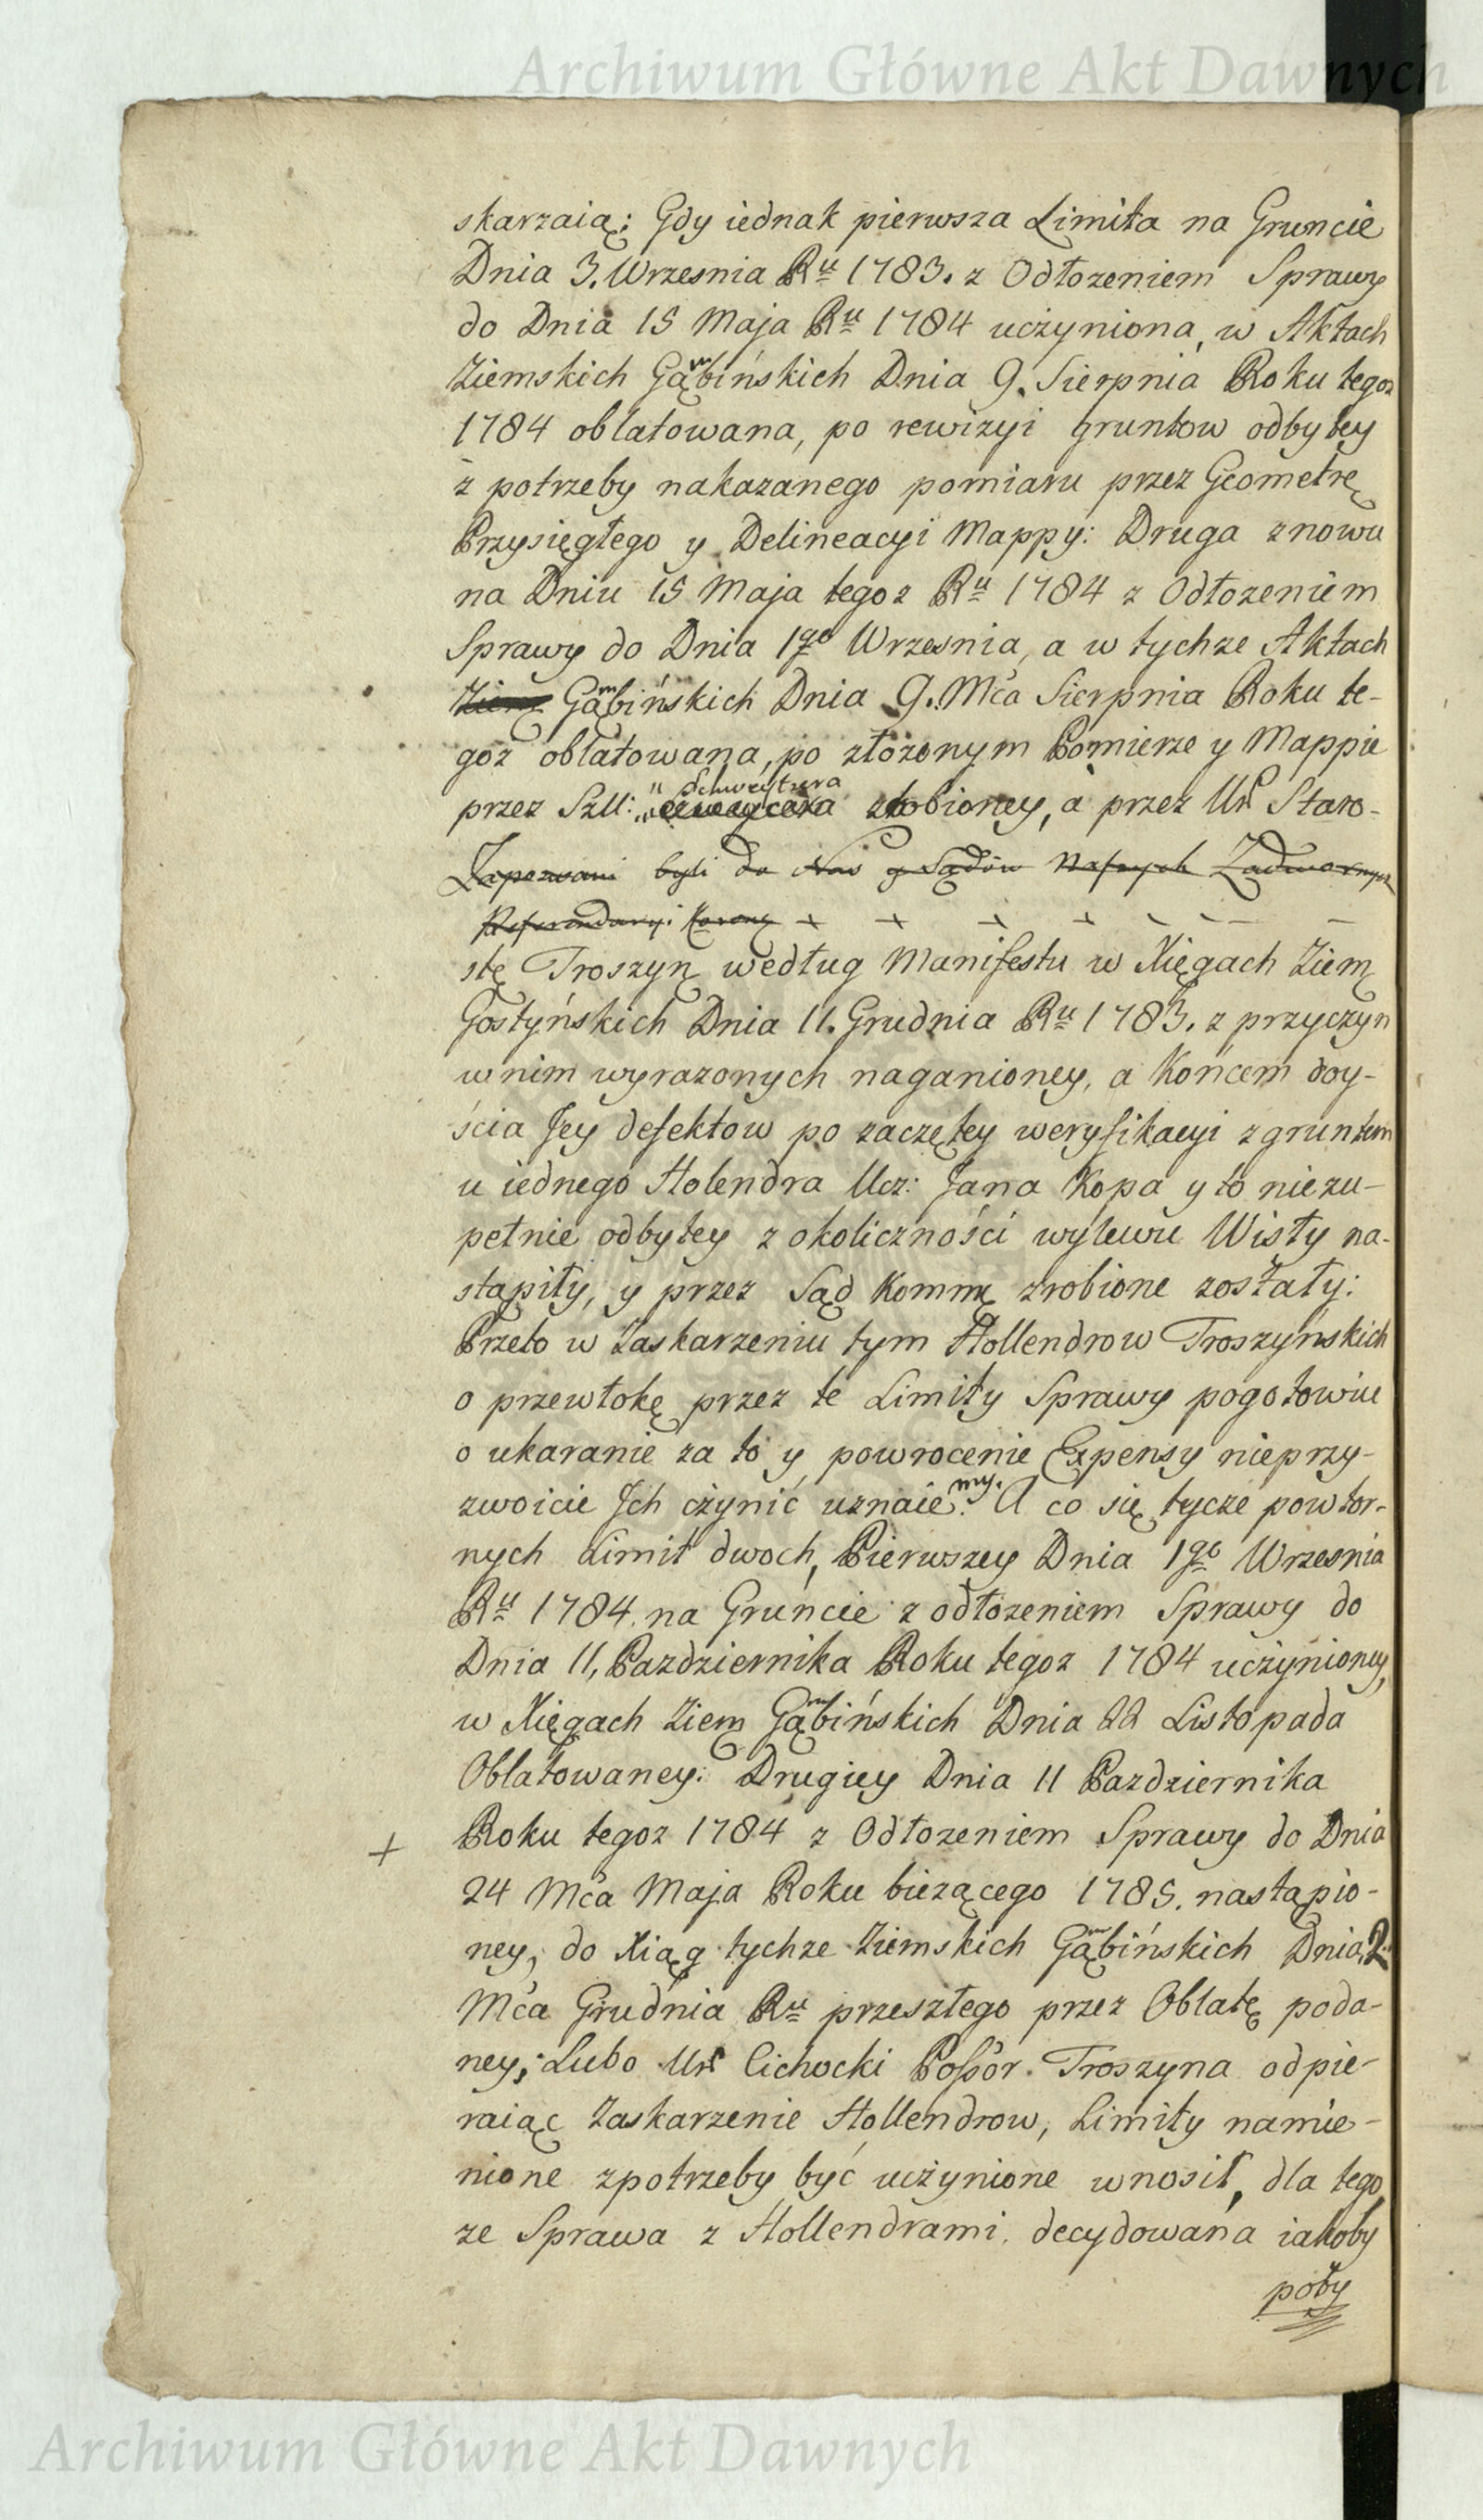 Archiwum Główne Akt Dawnych
skarzaią: Gdy iednak pierwsza Limita na Gruncie
Dnia 3. Wrzesnia Ru 1783. z Odłozeniem Sprawy
do Dnia 15 Maja Ru 1784 uczyniona, w Aktach
Ziemskich Gąmbińskich Dnia 9. Sierpnia Roku tegoz
1784 oblatowana, po rewizyi gruntow odbytey
z potrzeby nakazanego pomiaru przez Geometrę
Przysięgłego y Delineacyi Mappy: Druga znowu
na Dniu 15 Maja tegoz Ru 1784 z Odłozeniem
Sprawy do Dnia 1go Wrzesnia, a w tychze Aktach
Ziemę Gąmbińskich Dnia 9. Mca Sierpnia Roku te-
goz oblatowana, po złozonym Pomierze y Mappie
Schweytzera
przez Szll: zrobioney, a przez Ur Staro-
Zapozwani byli do Nas y Sądów Naszych Zadwornych
Referendaryi Korony
stę Troszyn według Manifestu w Xięgach Ziem
Gostyńskich Dnia 11. Grudnia Ru 1783. z przyczyn
w nim wyrazonych naganioney, a Koncem doy-
ścia Jey defektow po zaczętey weryfikacyi z gruntem
u iednego Holendra Ucz: Jana Kopa y to niezu-
pełnie odbytey z okoliczności wylewu Wisły na-
stąpiły, y przez Sąd Kommę zrobione zostały:
Przeto w Zaskarzeniu tym Hollendrow Troszyńskich
o przewłokę przez te Limity Sprawy pogotowiu
o ukaranie za to y powrocenie Expensy nieprzy-
zwoicie Jch czynić uznaiemy. A co się tycze powtor-
nych Limit dwoch, Pierwszey Dnia 1go Wrzesnia
Ru 1784. na Gruncie z odłozeniem Sprawy do
Dnia 11, Pazdziernika Roku tegoz 1784 uczynioney,
w Xięgach Ziem Gąmbińskich Dnia 22 Listopada
Oblatowaney: Drugiey Dnia 11 Pazdziernika
+ Roku tegoz 1784 z Odłozeniem Sprawy do Dnia
24 Mca Maja Roku biezącego 1785. nastąpio-
ney, do Xiąg tychze Ziemskich Gąmbińskich Dnia 2
Mca Grudnia Ru przeszłego przez Oblatę poda-
ney; Lubo Ur Cichocki Possor. Troszyna odpie-
raiąc Zaskarzenie Hollendrow, Limity namie-
nione zpotrzeby być uczynione wnosił, dla tego
ze Sprawa z Hollendrami. decydowana iakoby
poby
Archiwum Główne Akt Dawnych